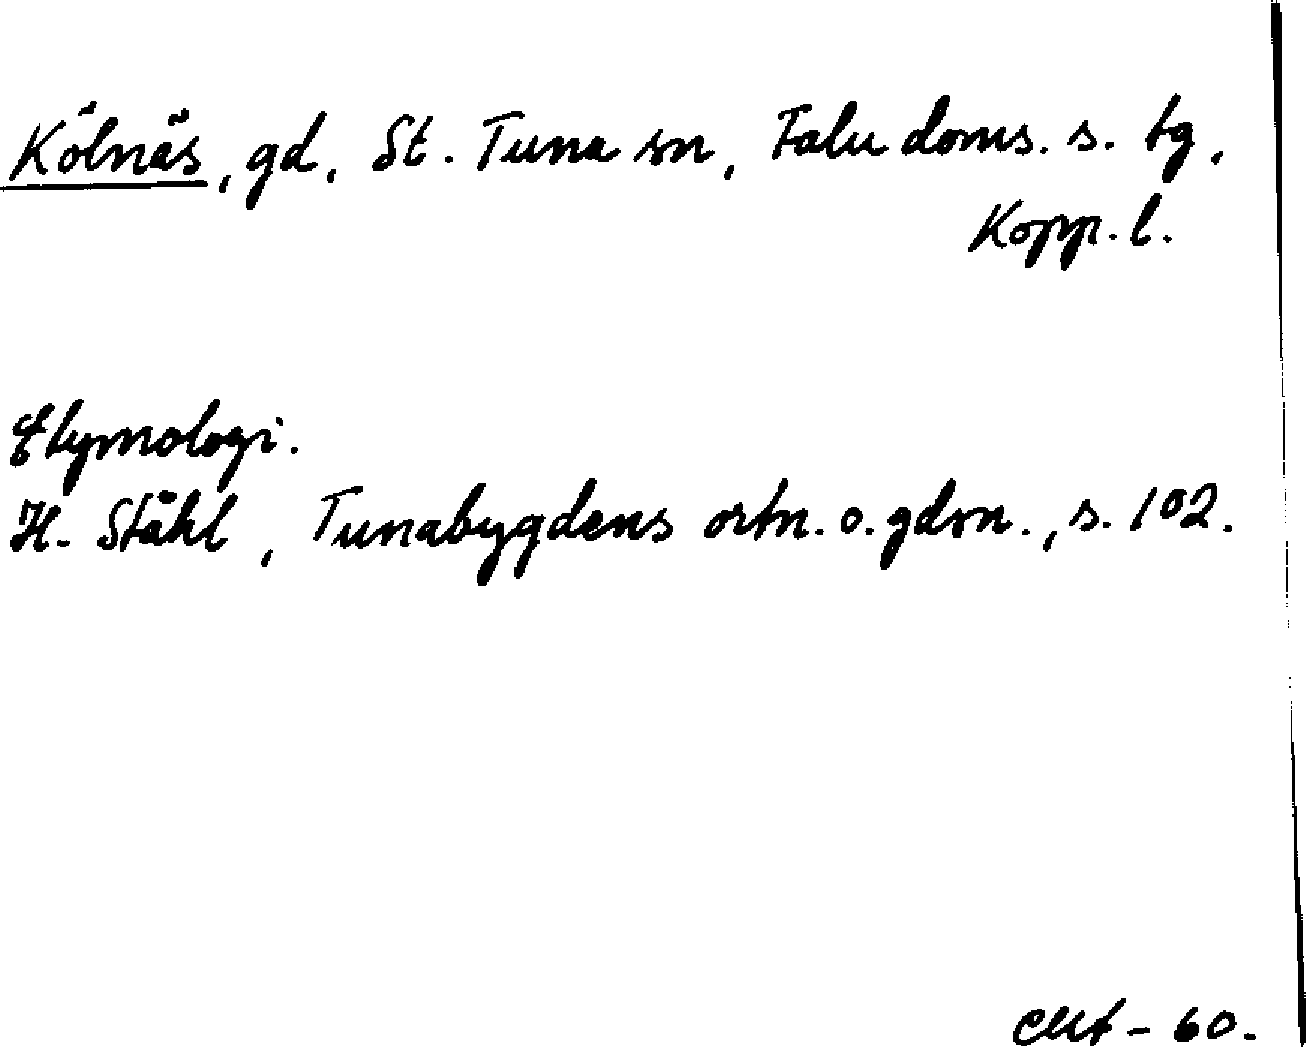 Kölnäs, gd, St. Tuna sn, Falu doms. s. tg,
Kopp. l.
Etymologi.
H. Ståhl, Tunabygdens ortn. o. gdsn., s. 102.
- 60.